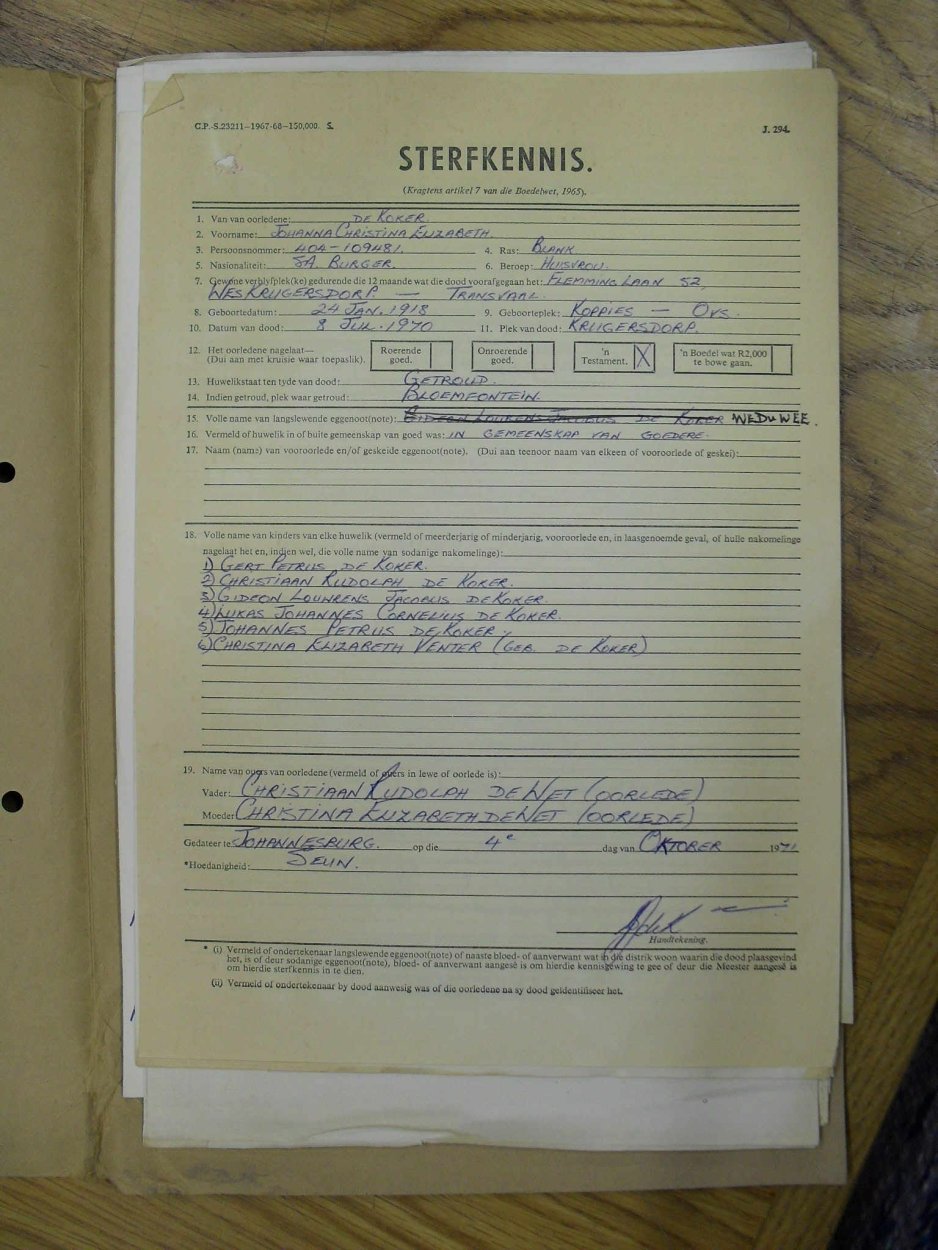 C.P.-S.23211—1967-68—150,000. S. J. 294.
STERFKENNIS.
(Kragtens artikel 7 van die Boedelwet, 1965).
1. Van van oorledene: DE KOKER.
2. Voorname: JOHANNA CHRISTINA ELIZABETH.
3. Persoonsnommer: 404-109481. 4. Ras: BLANK
5. Nasionaliteit: SA. BURGER. 6. Beroep: HUISVROU.
7. Gewone verblyfplek(ke) gedurende die 12 maande wat die dood voorafgegaan het: FLEMMING LAAN 52,
WES KRUGERSDORP. — TRANSVAAL.
8. Geboortedatum: 24 JAN. 1918 9. Geboorteplek: KOPPIES — OVS.
10. Datum van dood: 8 JUL. 1970 11. Plek van dood: KRUGERSDORP.
12. Het oorledene nagelaat— Roerende Onroerende 'n 'n Boedel wat R2,000
(Dui aan met kruisie waar toepaslik). goed. goed. Testament. X te bowe gaan.
13. Huwelikstaat ten tyde van dood: GETROUD.
14. Indien getroud, plek waar getroud: BLOEMFONTEIN.
15. Volle name van langslewende eggenoot(note): GIDEON LOURENS JACOBUS DE KOKER WEDUWEE.
16. Vermeld of huwelik in of buite gemeenskap van goed was: IN GEMEENSKAP VAN GOEDERE.
17. Naam (name) van vooroorlede en/of geskeide eggenoot(note). (Dui aan teenoor naam van elkeen of vooroorlede of geskei):
18. Volle name van kinders van elke huwelik (vermeld of meerderjarig of minderjarig, vooroorlede en, in laasgenoemde geval, of hulle nakomelinge
nagelaat het en, indien wel, die volle name van sodanige nakomelinge):
1) GERT PETRUS DE KOKER.
2) CHRISTIAAN RUDOLPH DE KOKER.
3) GIDEON LOUWRENS JACOBUS DE KOKER.
4) LUKAS JOHANNES CORNELIUS DE KOKER.
5) JOHANNES PETRUS DE KOKER.
6) CHRISTINA ELIZABETH VENTER (GEB. DE KOKER)
19. Name van ouers van oorledene (vermeld of ouers in lewe of oorlede is):
Vader: CHRISTIAAN RUDOLPH DE WET (OORLEDE)
Moeder CHRISTINA ELIZABETH DE WET (OORLEDE)
Gedateer te JOHANNESBURG. op die 4e dag van OKTOBER 1971
*Hoedanigheid: SEUN.
Handtekening.
* (i) Vermeld of ondertekenaar langslewende eggenoot(note) of naaste bloed- of aanverwant wat in die distrik woon waarin die dood plaasgevind
het, is of deur sodanige eggenoot(note), bloed- of aanverwant aangesê is om hierdie kennisgewing te gee of deur die Meester aangesê is
om hierdie sterfkennis in te dien.
(ii) Vermeld of ondertekenaar by dood aanwesig was of die oorledene na sy dood geïdentifiseer het.